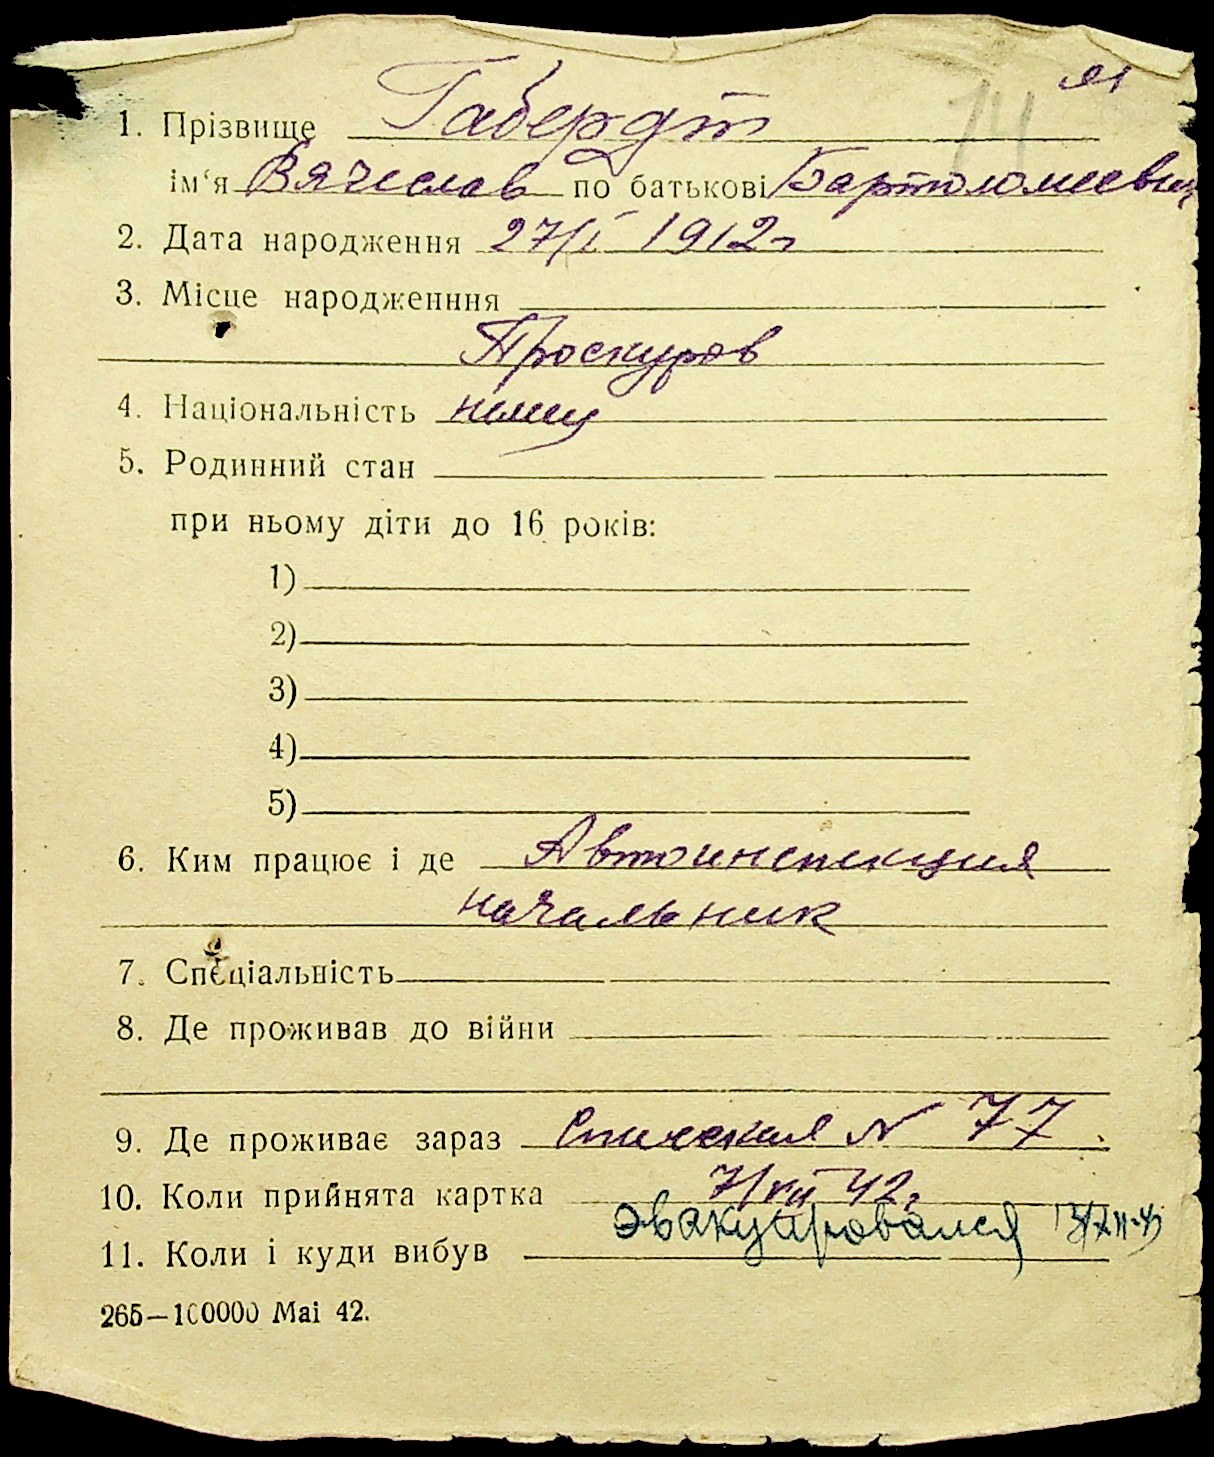 14
1. Прізвище Габердт
ім'я Вячеслав по батькові Бартоломеевич
2. Дата народження 27/I 1912г
3. Місце народженння
Проскуров
4. Національність немец
5. Родинний стан
при ньому діти до 16 років:
1)
2)
3)
4)
5)
6. Ким працює і де Автоинспекция
начальник
7. Спеціальність
8. Де проживав до війни
9. Де проживає зараз N 77
10. Коли прийнята картка 7/VII 42г
11. Коли і куди вибув эвакуировался
265—100000 Маі 42.